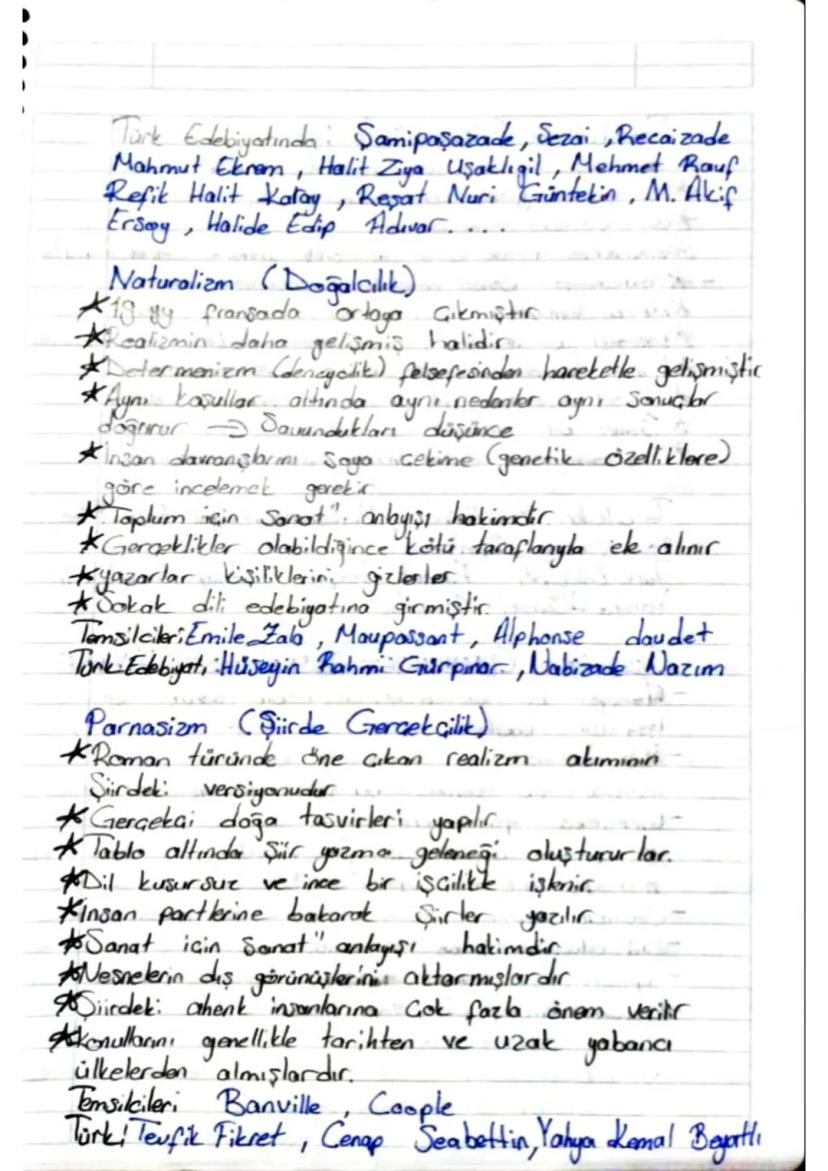 Türk Edebiyatında: Şamipaşazade, Sezai, Recaizade
Mahmut Ekrem, Halit Ziya Uşaklıgil, Mehmet Rauf
Refik Halit Katay, Reşat Nuri Güntekin, M. Akif
Ersoy, Halide Edip Adıvar....
Naturalizm (Doğalcılık)
*19 yy fransada ortaya çıkmıştır
*Realizmin daha gelişmiş halidir
*Determenizm (deneycilik) felsefesinden hareketle gelişmiştir
*Aynı koşullar altında aynı nedenler aynı sonuçlar
doğurur → Savundukları düşünce
*İnsan davranışlarını soya çekime (genetik özelliklere)
göre incelemek gerekir
*Toplum için sanat" anlayışı hakimdir
*Gerçeklikler olabildiğince kötü taraflarıyla ele alınır
*yazarlar kişiliklerini gizlerler
*Sokak dili edebiyatına girmiştir
Temsilcileri: Emile Zola, Maupassant, Alphonse daudet
Türk Edebiyatı: Hüseyin Rahmi Gürpınar, Nabizade Nazım
Parnasizm (Şiirde Gerçekçilik)
*Roman türünde öne çıkan realizm akımının
Şiirdeki versiyonudur
*Gerçekçi doğa tasvirleri yapılır
*Tablo altında şiir yazma geleneği oluştururlar.
*Dil kusursuz ve ince bir işçilikle işlenir
*insan bakarak Şiirler yazılır
*Sanat için Sanat" anlayışı hakimdir
*Nesnelerin dış görünüşlerini aktarmışlardır
*Şiirdeki ahenk insanlarına çok fazla önem verilir
*konularını genellikle tarihten ve uzak yabancı
ülkelerden almışlardır.
Temsilcileri Banville, Coople
Türk: Tevfik Fikret, Cenap Seabettin, Yahya Kemal Beyatlı